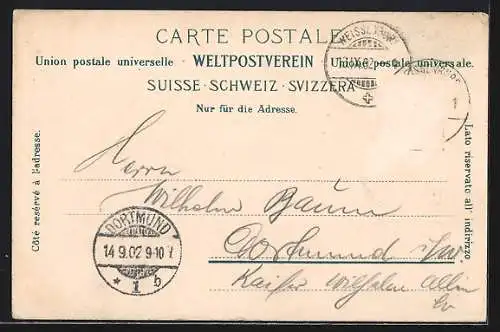 CARTE POSTALE
Union postale universelle · WELTPOSTVEREIN · Unione postale universale.
SUISSE · SCHWEIZ · SVIZZERA
Nur für die Adresse.
Côté réservé à l'adresse.
Lato riservato all' indirizzo
Herrn
Wilhelm Baum
Dortmund i/W.
Kaiser Wilhelm Allee
DORTMUND
14.9.02 9-10 V
* 1 b